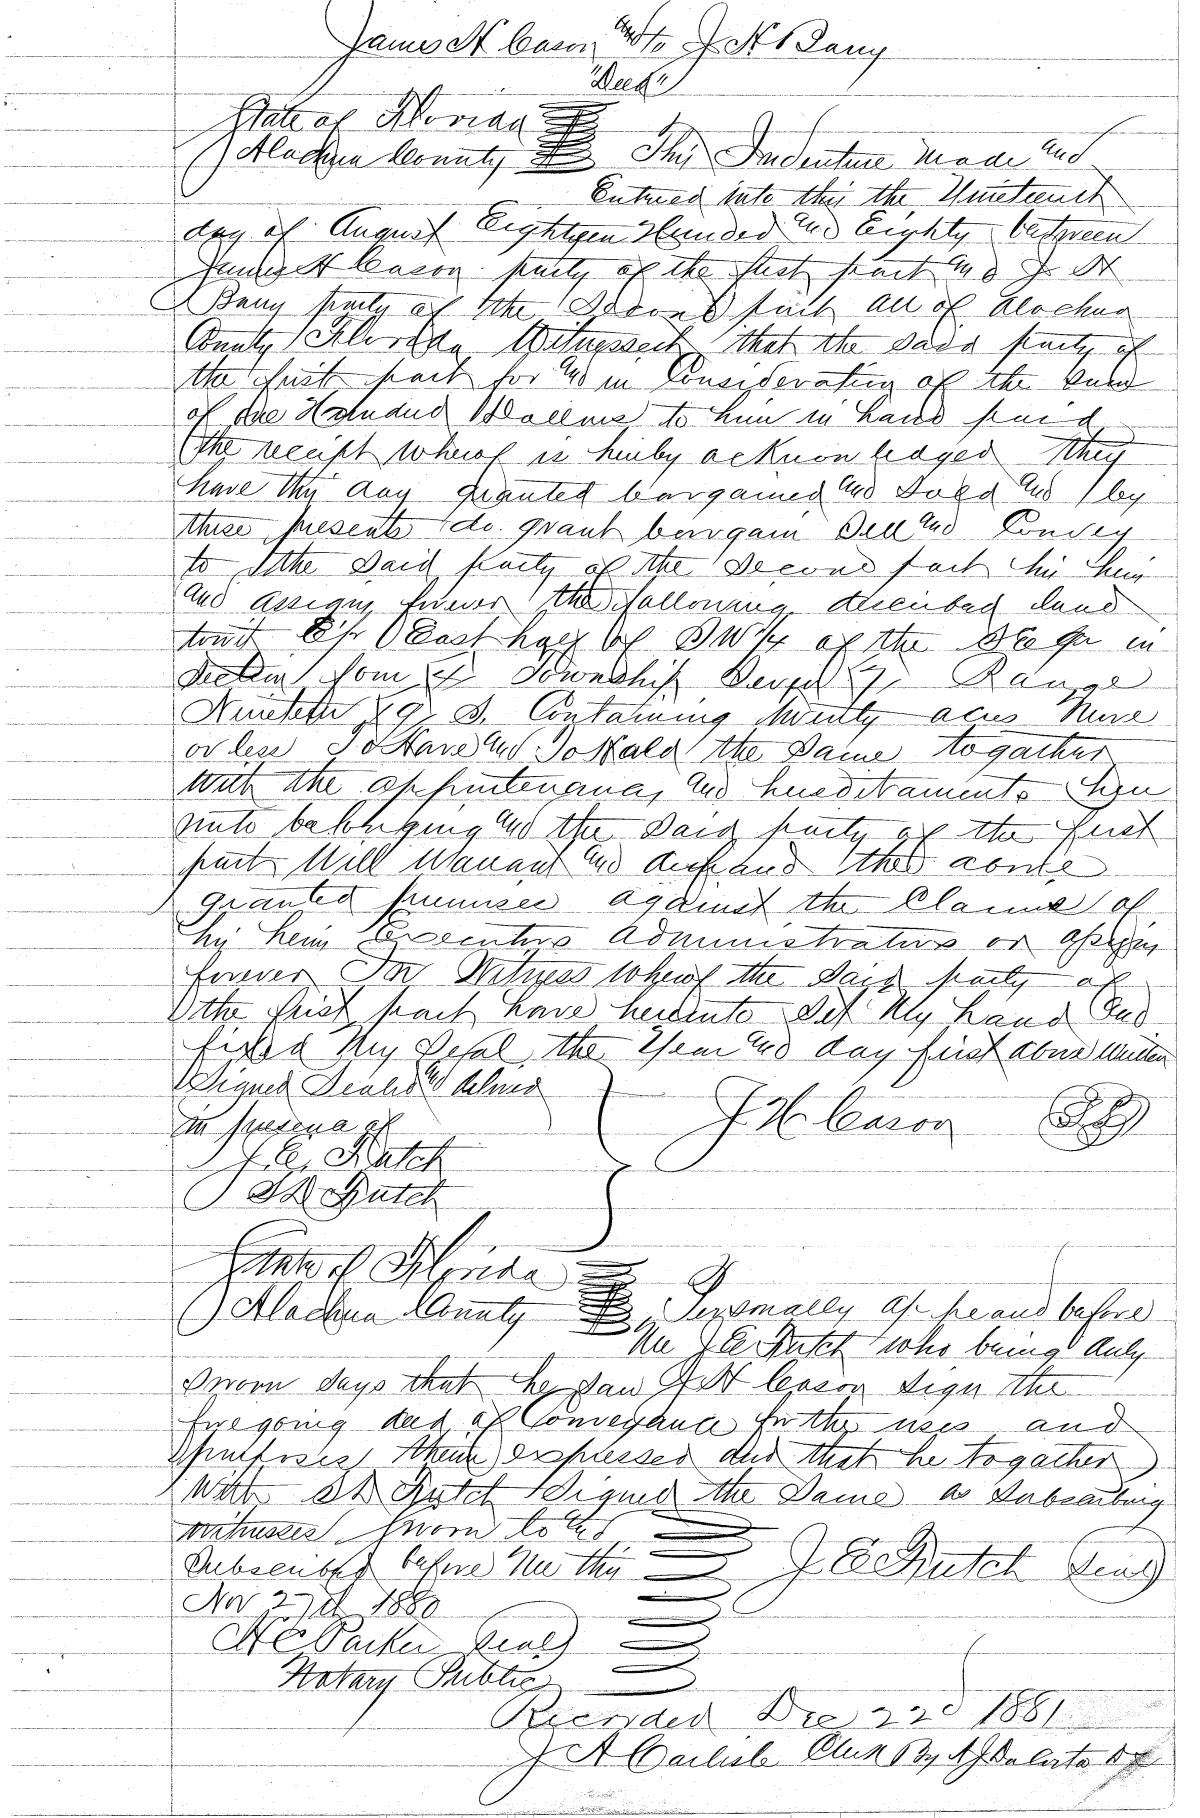 James H Cason and to J H Barry
"Deed"
State of Florida
Alachua County This Indenture made and
Entered into this the Nineteenth
day of August Eighteen Hundred and Eighty between
James H Cason party of the first part and J H
Barry party of the Second part all of Alachua
County Florida Witnesseth that the said party of
the first part for and in Consideration of the Sum
of one Hundred Dollars to him in hand paid
the receipt whereof is hereby acknowledged they
have this day granted bargained and Sold and by
these presents do grant bargain Sell and Convey
to the said party of the Second part his heirs
and assigns forever the following described land
towit East half of SW 1/4 of the SE qr in
Section four 4 Township Seven 7 Range
Nineteen 19 S. Containing twenty acres More
or less To Have and To Hold the Same togather
With the appurtenances and hereditaments there
unto belonging and the Said party of the first
part Will Warrant and defend the above
granted premises against the Claims of
his heirs Executors administrators or assigns
forever In Witness Whereof the Said party of
the first part have hereunto Set My hand and
fixed My Seal the Year and day first above Written
Signed Sealed and delivered
in presence of J. H Cason
J. E. Futch
Futch
State of Florida
Alachua County Personally appeared before
Me J E Futch who being duly
Sworn Says that he saw J H Cason Sign the
foregoing deed of Conveyance for the uses and
purposes therein expressed and that he togather
With Futch Signed the Same as Subscribing
Witnesses Sworn to and
Subscribed before Me this J E Futch Seal
Nov 27th 1880
H C Parker Seal
Notary Public
Recorded Dec 22d 1881
J A Carlisle Clerk By